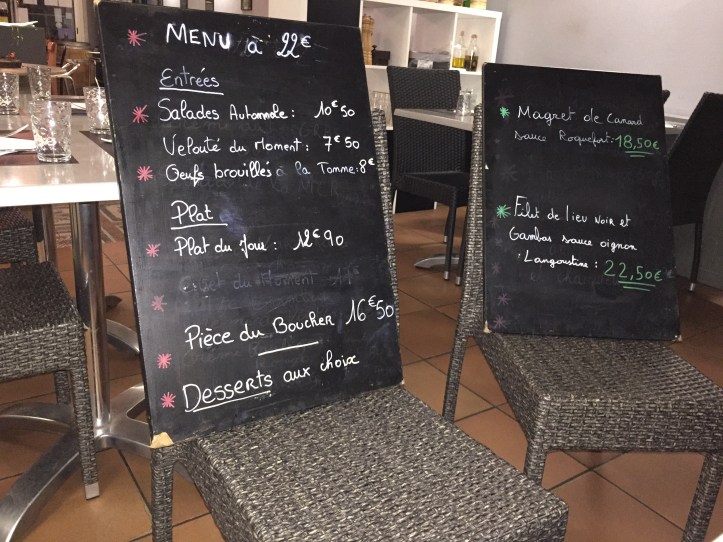 MENU à 22€
Entrées
Salades Automnale: 10€50
Velouté du Moment: 7€50
Oeufs brouillés à la Tomme: 8€
Plat
Plat du Jour: 12€90
du Moment
Pièce du Boucher 16€50
Desserts aux choix
Magret de Canard
sauce Roquefort: 18,50€
Filet de lieu noir et
Gambas sauce oignon
Langoustine: 22,50€